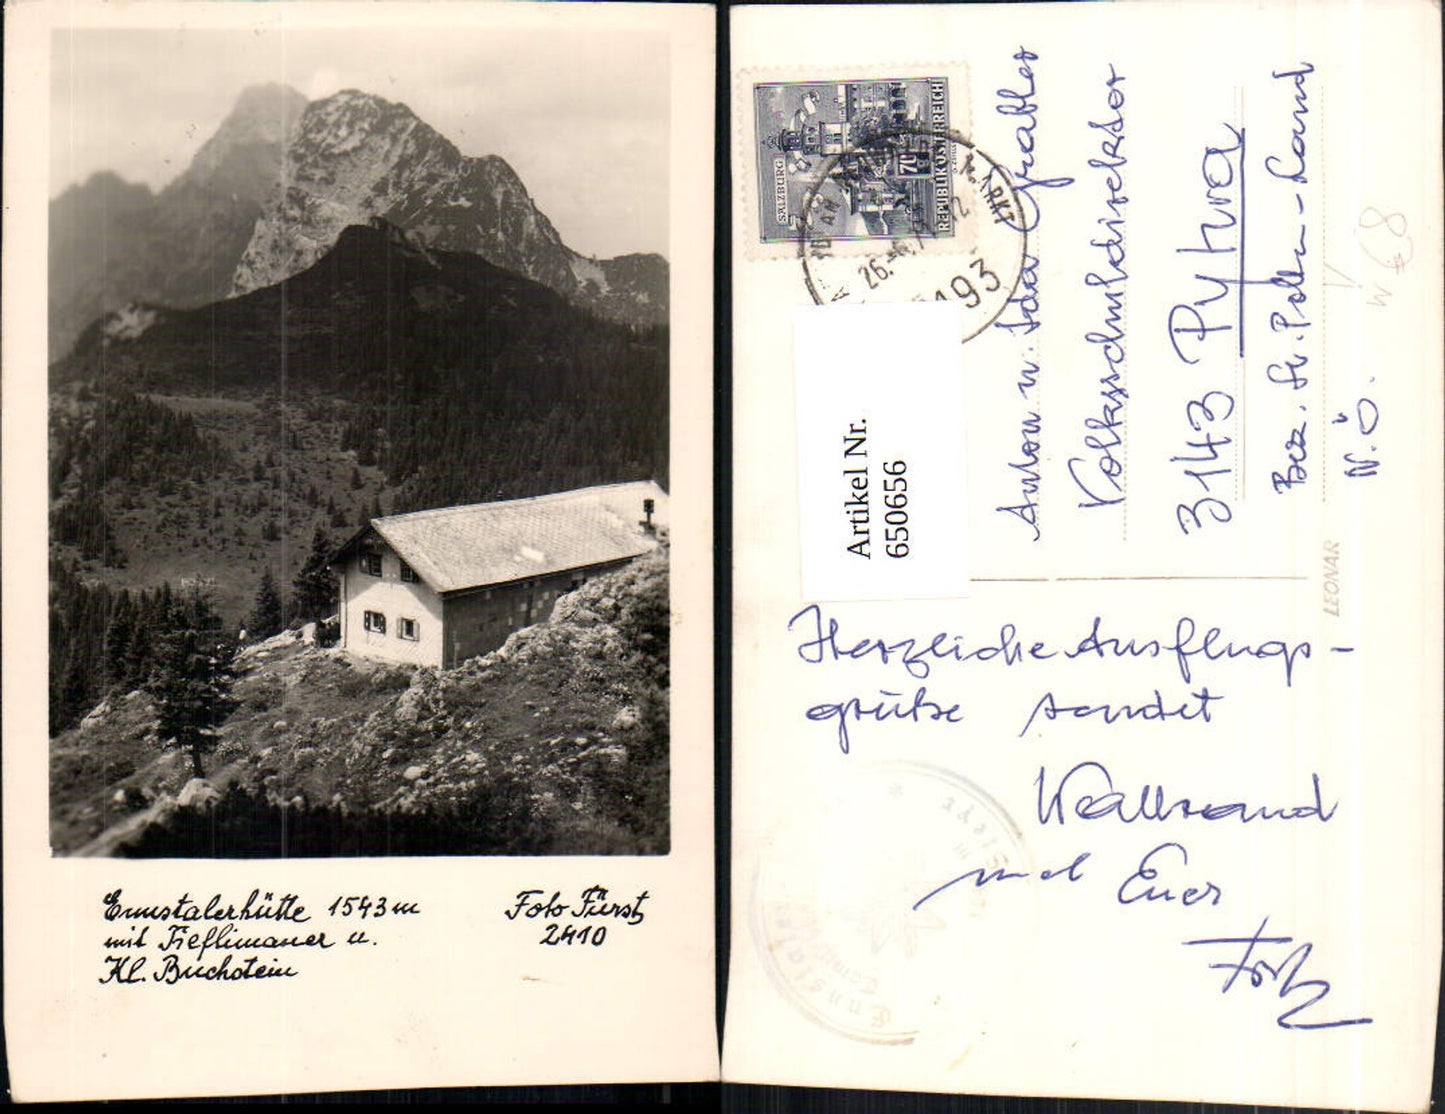 Ennstalerhütte 1543m
mit Tieflimauer u.
Kl. Buchstein
Foto Fürst
2410
SALZBURG
70
REPUBLIK ÖSTERREICH
26.
193
Artikel Nr.
650656
Anton u. Ida Grabler
Volksschuldirektor
3143 Pyhra
Bez. St. Pölten-Land
N.Ö.
LEONAR
Herzliche Ausflugs-
grüße sendet
Waltraud
und Euer
* Steyr